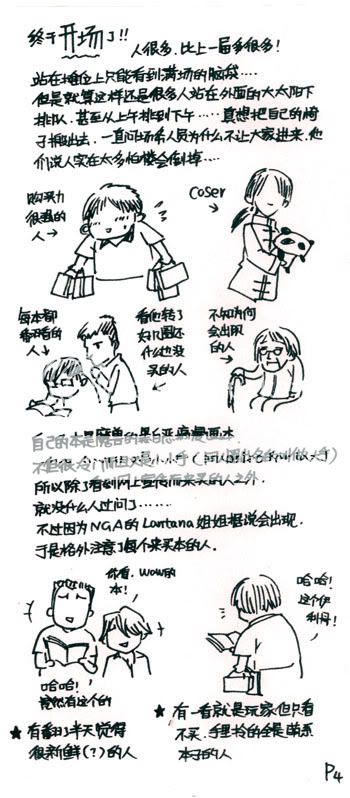 终于开场了!!
人很多.比上一届多很多!
站在摊位上只能看到满场的脑袋….
但是就算这样还是很多人站在外面的大太阳下
排队.甚至从上午排到下午……真想把自己的椅
子搬出去.一直问场布人员为什么不让大家进来.他
们说人实在太多怕楼会倒掉….
购买力
很强的
人→
Coser
每本都
翻开看的
人
看他转了
好几圈还
什么也没
买的人
不知为何
会出现
的人
自己的本是魔兽的
不但很冷门而且又是小小手
所以除了看到网上宣传而来买的人之外.
就没什么人过问了……..
不过因为NGA的Lantana姐姐据说会出现.
于是格外注意了每个来买本的人.
你看.WOW的
本!
哈哈!
竟然有这个的
哈哈!
这个伊
利丹!
★有翻了半天觉得
很新鲜(?)的人
★有一看就是玩家但只看
不买.手里拎的全是萌系
本子的人
P4